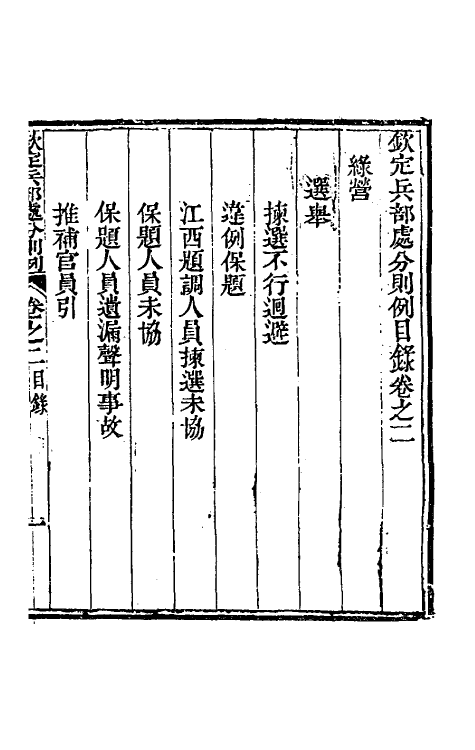 欽定兵部處分則例目錄卷之二
綠營
選舉
揀選不行迴避
違例保題
江西題調人員揀選未協
保題人員未協
保題人員遺漏聲明事故
推補官員引
欽定兵部處分則例 卷之二目錄 一